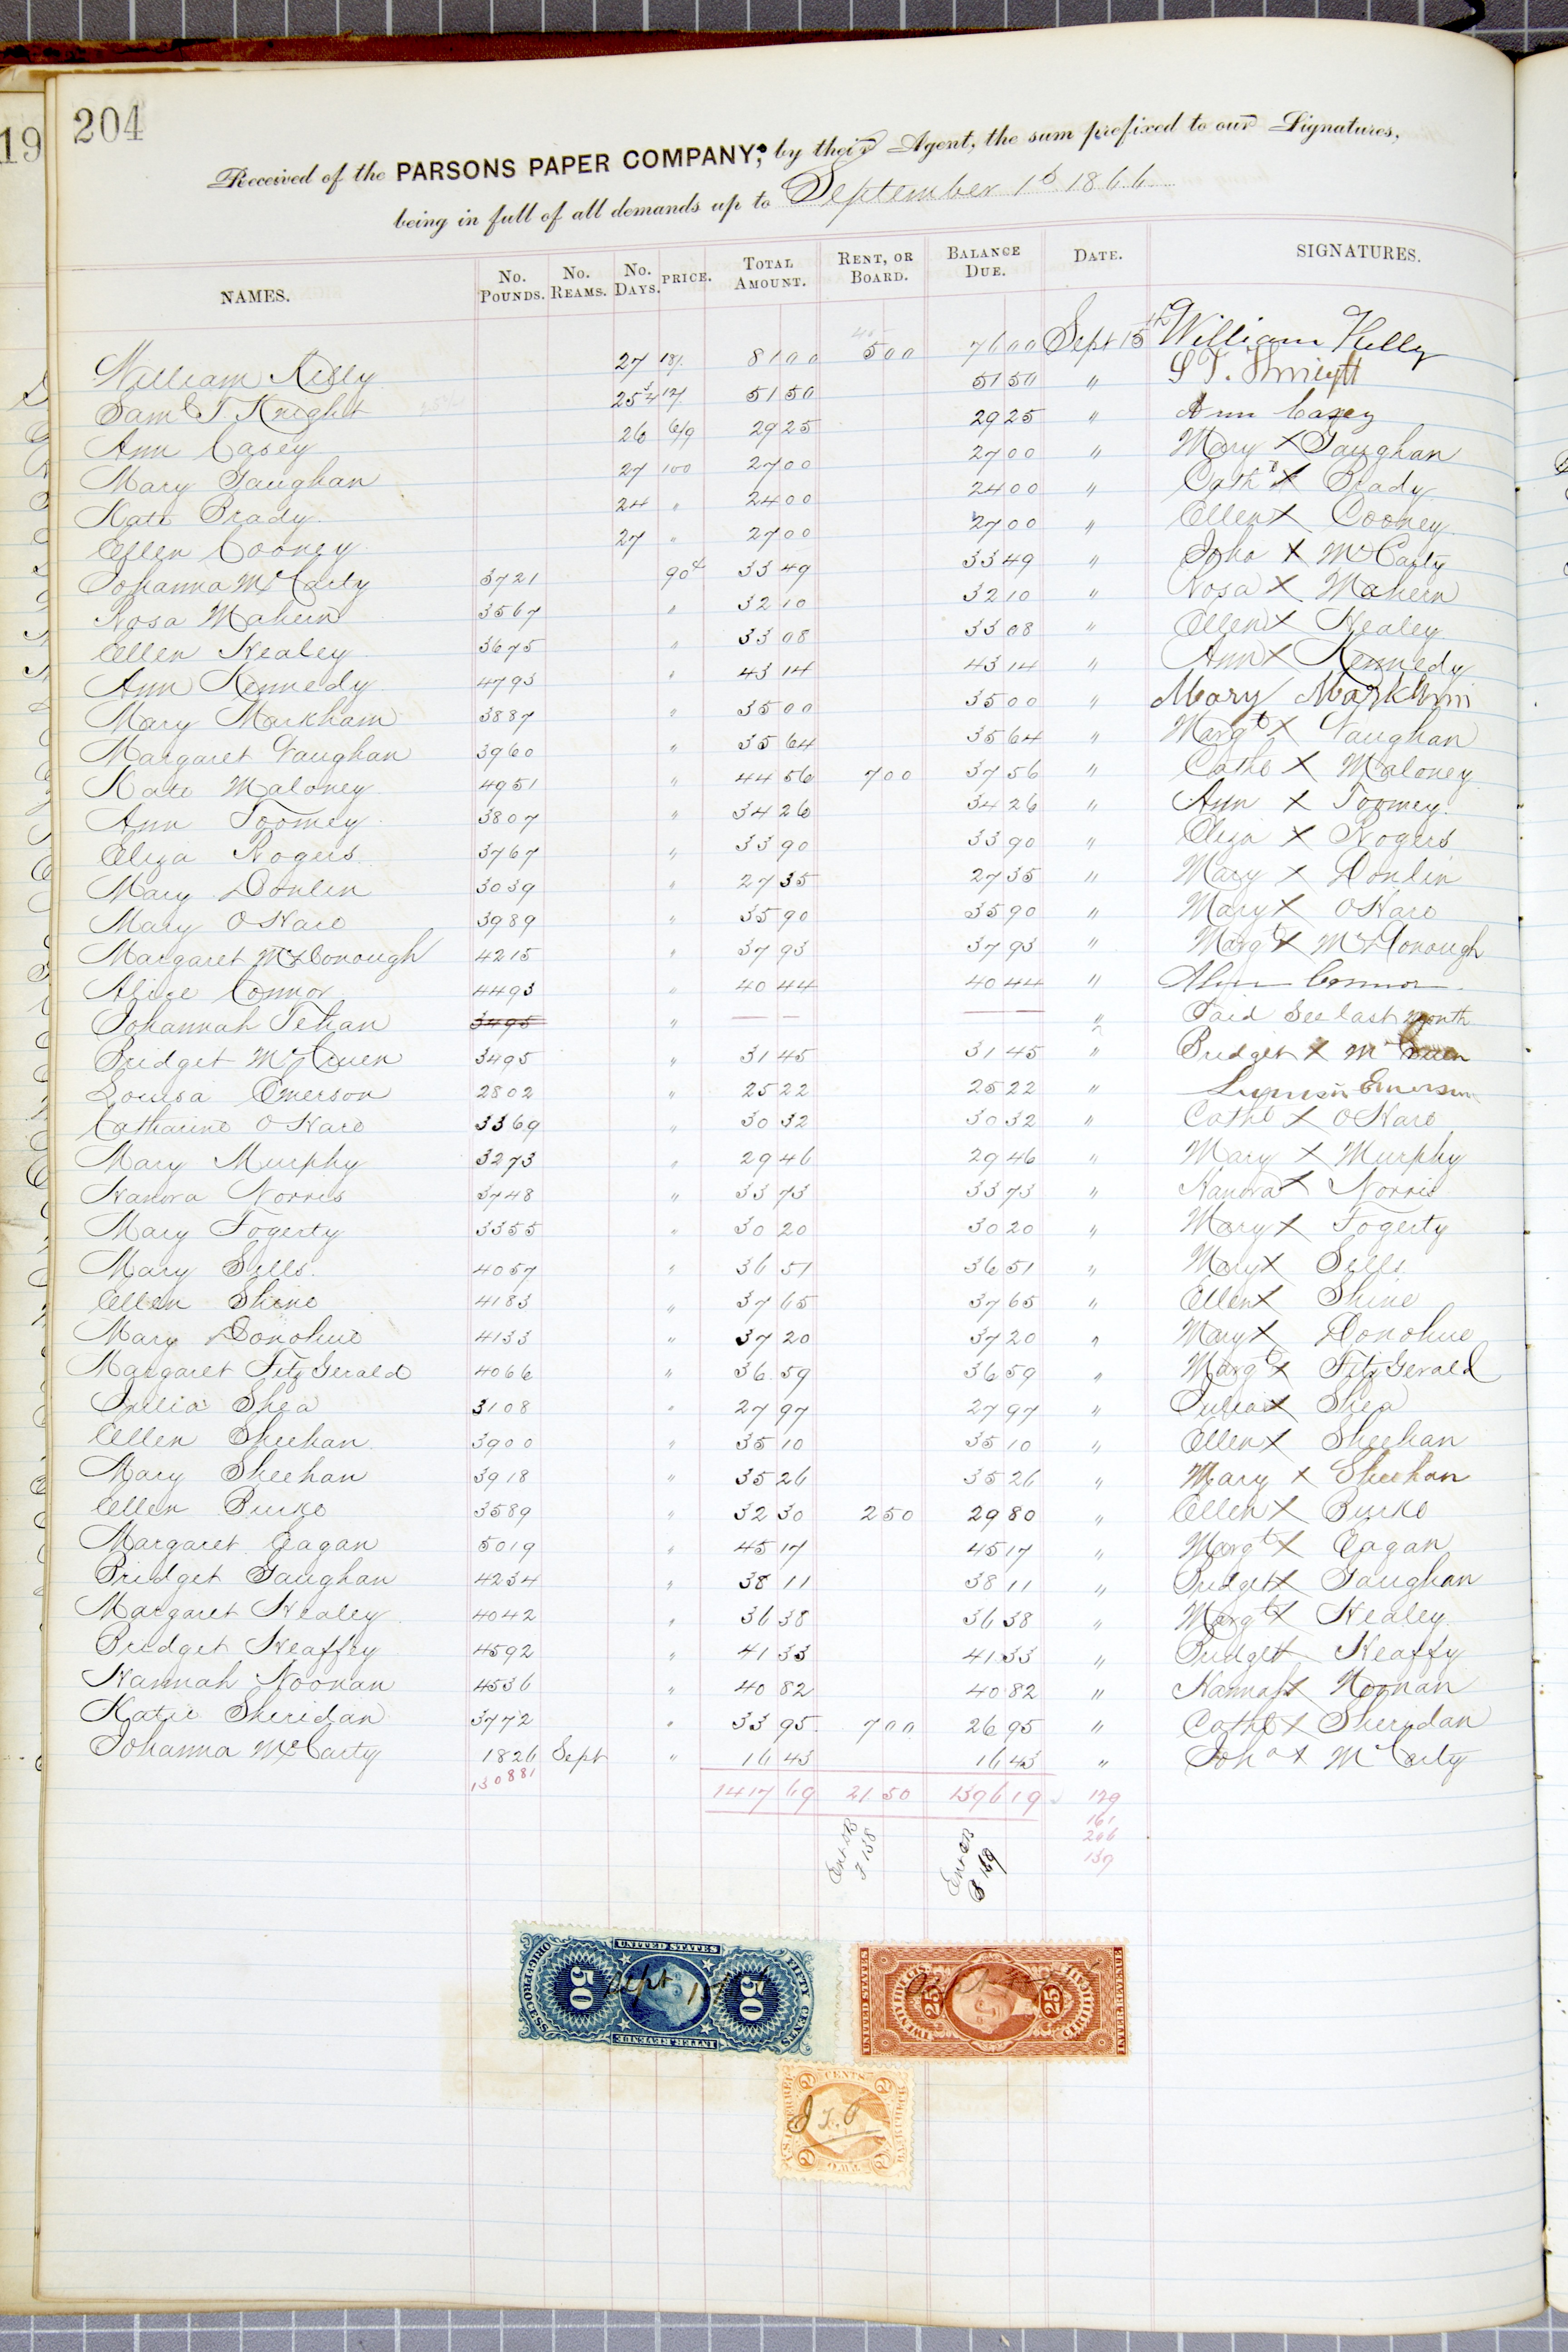 19
204
Received of the PARSONS PAPER COMPANY, by their Agent, the sum prefixed to our Signatures,
being in full of all demands up to September 1st 1866
NAMES. No. POUNDS. No. REAMS. No. DAYS. PRICE. TOTAL AMOUNT. RENT, OR BOARD. BALANCE DUE. DATE. SIGNATURES.
William Kelly 27 18/. 81 00 5 00 76 00 Sept 15th William Kelly
Saml T. Knight 25 3/4 12/. 51 50 51 50 " S T.
Ann Casey 26 6/9 29 25 29 25 " Ann Casey
Mary Gaughan 27 100 27 00 27 00 " Mary X Gaughan
Kate Brady 24 " 24 00 24 00 " Cathe X Brady
Ellen Cooney 27 " 27 00 27 00 " Ellen X Cooney
Johanna McCarty 3721 90c 33 49 33 49 " Joha X McCarty
Rosa Mahern 3567 " 32 10 32 10 " Rosa X Mahern
Ellen Healey 3675 " 33 08 33 08 " Ellen X Healey
Ann Kennedy 4793 " 43 14 43 14 " Ann X Kennedy
Mary Markham 3887 " 35 00 35 00 " Mary
Margaret Vaughan 3960 " 35 64 35 64 " Margt X Vaughan
Kate Maloney 4951 " 44 56 7 00 37 56 " Cathe X Maloney
Ann Toomey 3807 " 34 26 34 26 " Ann X Toomey
Eliza Rogers 3767 " 33 90 33 90 " Eliza X Rogers
Mary Donlin 3039 " 27 35 27 35 " Mary X Donlin
Mary OHare 3989 " 35 90 35 90 " Mary X OHare
Margaret McDonough 4215 " 37 93 37 93 " Margt X McDonough
Alice Connor 4493 " 40 44 40 44 " Connor
Johannah Tehan 3495 " — — — " Paid See last month
Bridget McCuen 3495 " 31 45 31 45 " Bridget X McCuen
Louisa Emerson 2802 " 25 22 25 22 " Emerson
Catharine OHare 3369 " 30 32 30 32 " Cathe X OHare
Mary Murphy 3273 " 29 46 29 46 " Mary X Murphy
Hanora Norris 3748 " 33 73 33 73 " Hanora X Norris
Mary Fogerty 3355 " 30 20 30 20 " Mary X Fogerty
Mary Sells 4057 " 36 51 36 51 " Mary X Sells
Ellen Shine 4183 " 37 65 37 65 " Ellen X Shine
Mary Donohue 4133 " 37 20 37 20 " Mary X Donohue
Margaret FitzGerald 4066 " 36 59 36 59 " Margt X FitzGerald
Julia Shea 3108 " 27 97 27 97 " Julia X Shea
Ellen Sheehan 3900 " 35 10 35 10 " Ellen X Sheehan
Mary Sheehan 3918 " 35 26 35 26 " Mary X Sheehan
Ellen Burke 3589 " 32 30 2 50 29 80 " Ellen X Burke
Margaret Eagan 5019 " 45 17 45 17 " Margt X Eagan
Bridget Gaughan 4234 " 38 11 38 11 " Bridget X Gaughan
Margaret Healey 4042 " 36 38 36 38 " Margt X Healey
Bridget Heaffey 4592 " 41 33 41 33 " Bridget X Heaffy
Hannah Noonan 4536 " 40 82 40 82 " Hannah X Noonan
Katie Sheridan 3772 " 33 95 7 00 26 95 " Cathe X Sherydan
Johanna McCarty 1826 Sept " 16 43 16 43 " Joha X McCarty
130881 1417 69 21 50 1396 19 129
161
206
139
Ent DB
J 138
Ent CB
B 139
UNITED STATES
ORIG. PROCESS
FIFTY CENTS
50
50
INTER. REVENUE
Sept 15
UNITED STATES
TWENTY FIVE CTS
25
25
CERTIFICATE
INTER. REVENUE
U.S. INTER. REV.
2 CENTS 2
BANK CHECK
2 TWO 2